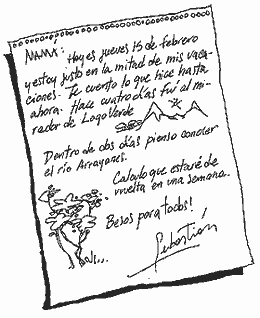 MAMÁ: Hoy es jueves 15 de febrero
y estoy justo en la mitad de mis vaca-
ciones. Te cuento lo que hice hasta
ahora. Hace cuatro días fui al mi-
rador de Lago Verde
Dentro de dos días pienso conocer
el río Arrayanes.
Calculo que estaré de
vuelta en una semana.
Besos para todos!
Sebastián